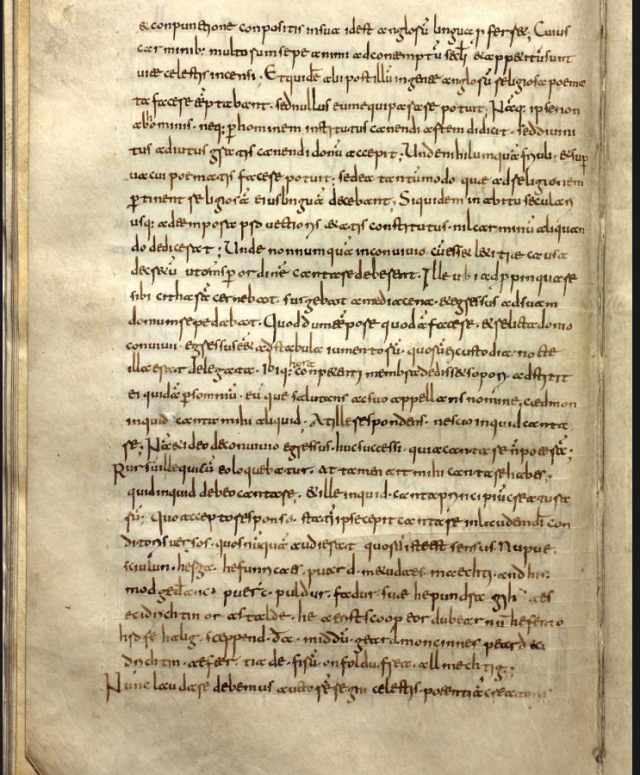 & conpunctione conpositis in sua id est anglosū lingua pferr&; Cuius
carminib; multorum sepe animi ad contemptū sc̄li & app&itū sunt
uitæ celestis incensi. Et quidē alii post illū in gente anglorū religiosa poema
ta facere tēptabant. sed nullus eum equiparare potuit; Nāq: ipse non
ab hominib; neq: p hominem institutus canendi artem didicit. sed diuini
tus adiutus gratis canendi donū accepit; Unde nihil umquā friuoli & sup
uacui poematis facere potuit. sed ea tantūmodo quæ ad religionem
ptinent religiosā eius linguā decebant; Siquidem in habitu seculari
usq: ad tempora puectioris &atis constitutus. nil carminū aliquan
do didicerat; Unde nonnumquā in conuiuio cū ess& l&itiæ causa
decr&ū ut oms p ordinē cantare deberent. Ille ubi adppinquare
sibi citharā cernebat. surgebat a media cena. & egressus ad suam
domum repedabat. Quod dum tēpore quodā faceret. & relicta domo
conuiuii. egressus ēēt ad stabula iumentorū. quorū ei custodia nocte
illa erat delegata. ibiq: hora conpetenti membra dediss& sopori. adstitit
ei quidā p somniū. eūque salutans ac suo appellans nomine, caedmon
inquid canta mihi aliquid. At ille respondens. nescio inquid canta
re; Nā & ideo de conuiuio egressus. huc successi. quia cantare n̄ poterā;
Rursū ille qui cū eo loquebatur. at tamen ait mihi cantare habes.
quid inquid debeo cantare. & ille inquid. canta principiū creatura
rū; Quo accepto responso. statī ipse cepit cantare in laudem dī con
ditoris uersos. quos nūquā audierat quorū iste est sensus Nu pue.
sciulun. hergæ. hefunricaes puard. metudæs maechti. and his
modgedanc. puerc. puldur. fadur. sue he pundra gihuaes
eci drichtin or astalde. he ærist scoop eor dubearnū hefen to
hrofe halig. sceppend. da. middū. geard. moncinnes peard eci
drichtin. æfter. tiade. firū. on foldu. frea. allmechtig;
Nunc laudare debemus auctorē regni celestis. potentiā creatoris